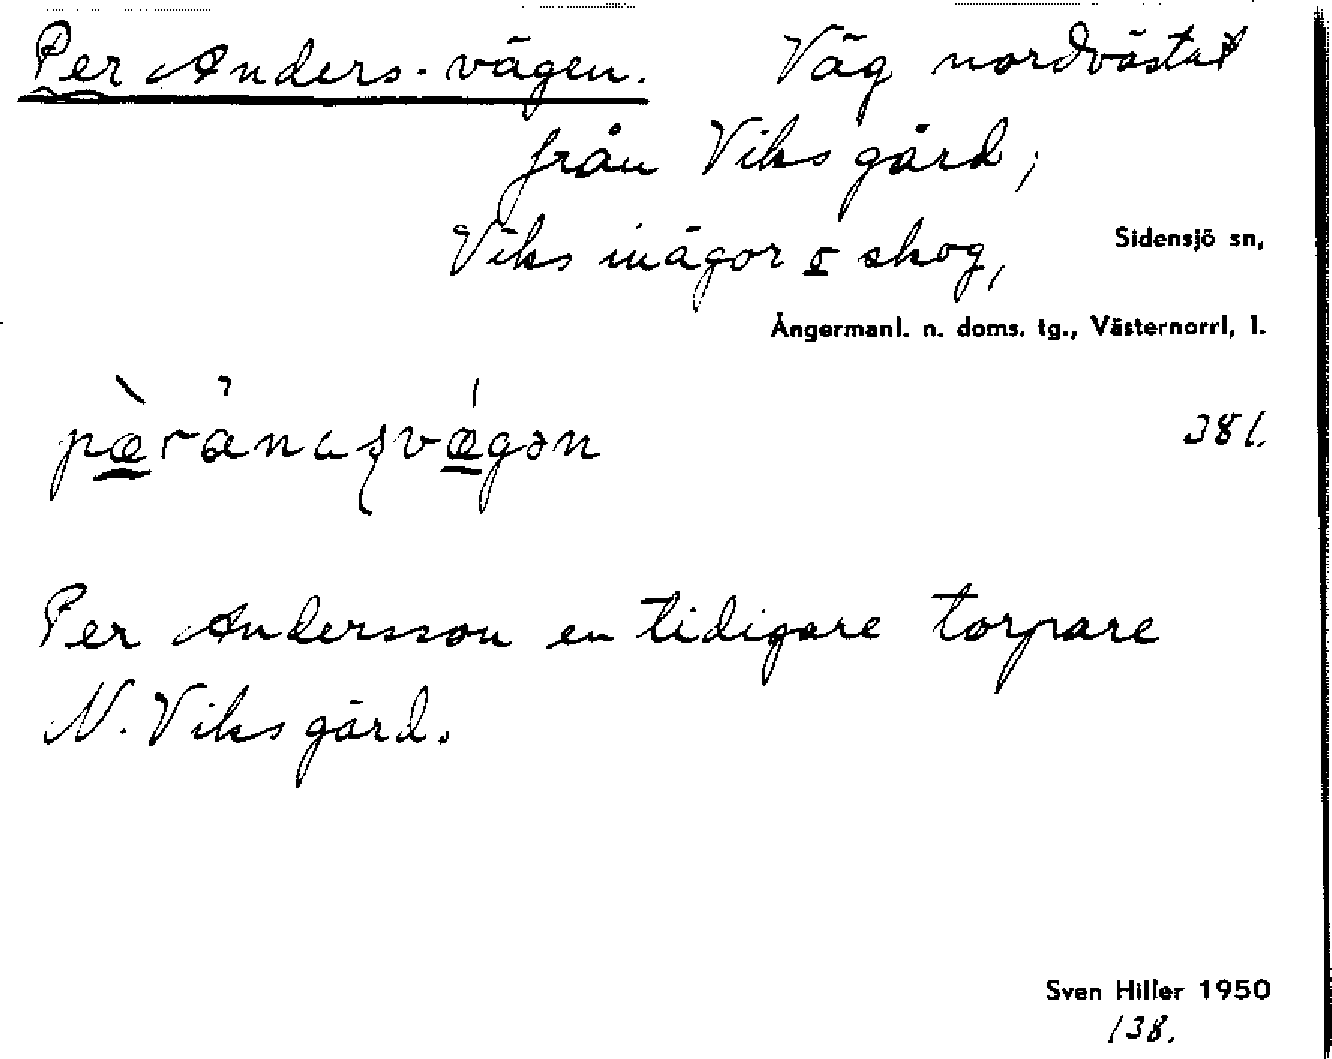 Per Anders-vägen. Väg nordvästut
från Viks gård,
Viks inägor o skog, Sidensjö sn,
Ångermanl. n. doms. tg., Västernorrl, l.
381.
Per Andersson en tidigare torpare
N. Viks gård.
Sven Hiller 1950
138.